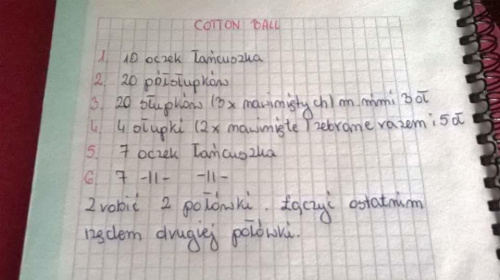 COTTON BALL
1. 10 oczek łańcuszka
2. 20 półsłupków
3. 20 słupków (3x nawiniętych) m. nimi 3 oł
4. 4 słupki (2x nawinięte) zebrane razem i 5 oł
5. 7 oczek łańcuszka
6. 7 -11- -11-
Zrobić 2 połówki. Łączyć ostatnim
rzędem drugiej połówki.